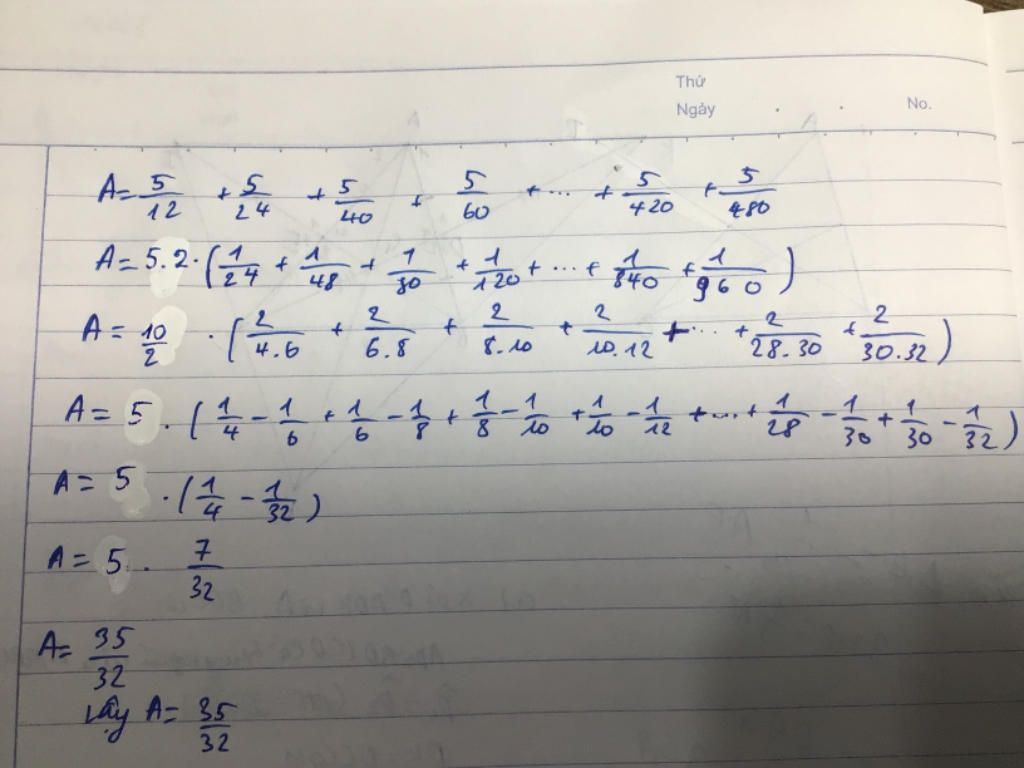 Thứ
Ngày . . No.
A = 5/12 + 5/24 + 5/40 + 5/60 + ... + 5/420 + 5/480
A = 5.2.(1/24 + 1/48 + 1/80 + 1/120 + ... + 1/840 + 1/960)
A = 10/2 . (2/4.6 + 2/6.8 + 2/8.10 + 2/10.12 + ... + 2/28.30 + 2/30.32)
A = 5 . (1/4 - 1/6 + 1/6 - 1/8 + 1/8 - 1/10 + 1/10 - 1/12 + ... + 1/28 - 1/30 + 1/30 - 1/32)
A = 5 . (1/4 - 1/32)
A = 5 . 7/32
A = 35/32
Vậy A = 35/32